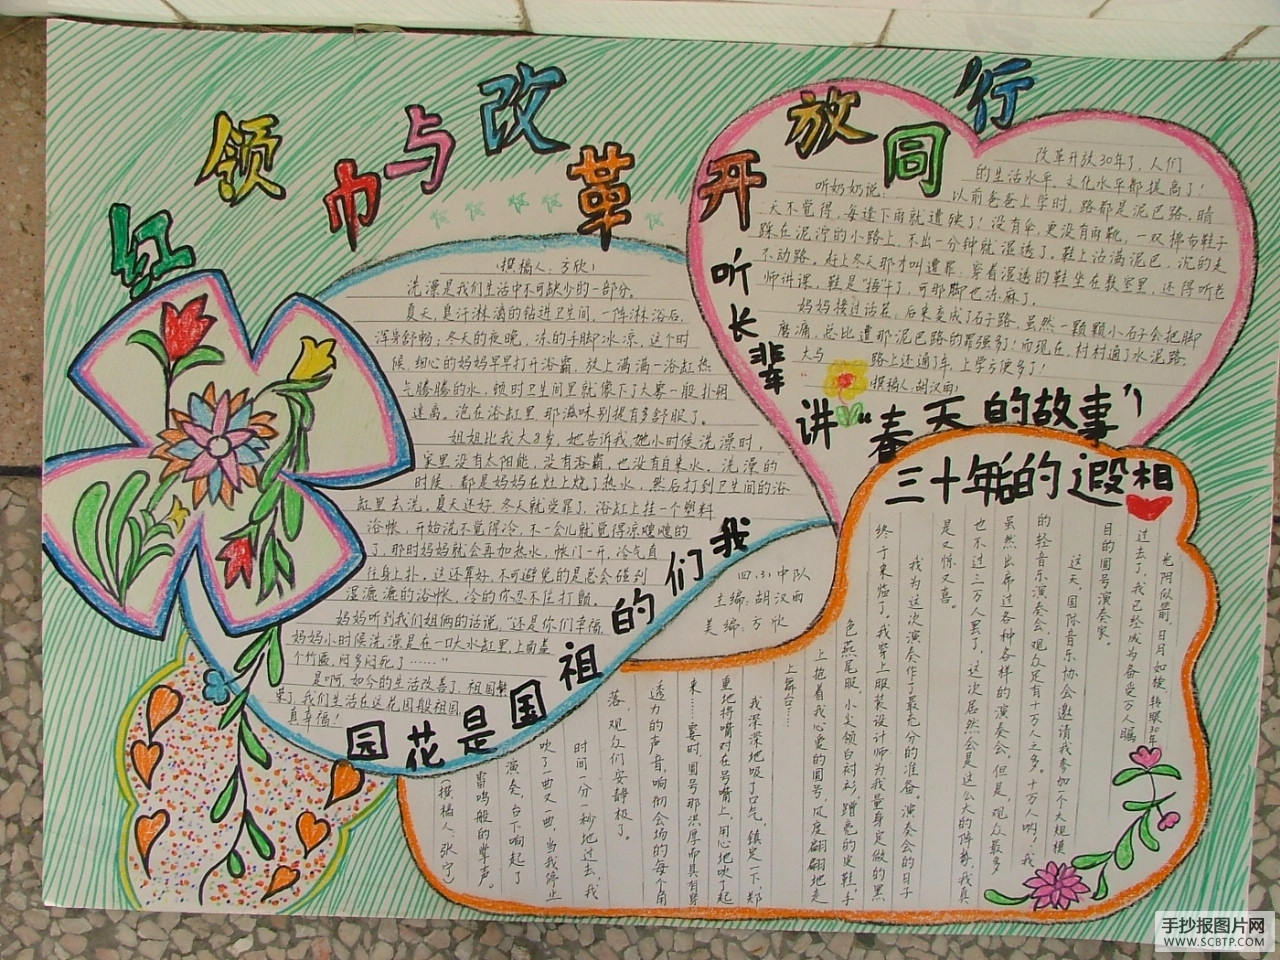 红领巾与改革开放同行
(撰稿人：方欣)
洗澡是我们生活中不可缺少的一部分。
夏天，臭汗淋漓的钻进卫生间，一阵淋浴后，
浑身舒畅；冬天的夜晚，冻的手脚冰凉，这个时
候，细心的妈妈早早打开浴霸，放上满满一浴缸热
气腾腾的水，顿时卫生间里就像下了大雾一般扑朔
迷离，泡在浴缸里，那滋味别提有多舒服了。
姐姐比我大8岁，她告诉我，她小时候洗澡时，
家里没有太阳能，没有浴霸，也没有自来水。洗澡的
时候，都是妈妈在灶上烧了热水，然后打到卫生间的浴
缸里去洗。夏天还好，冬天就受罪了，浴缸上挂一个塑料
浴帐，开始洗不觉得冷，不一会儿就觉得凉嗖嗖的
了，那时妈妈就会再加热水，帐门一开，冷气直
往身上扑。这还算好，不可避免的是总会碰到
湿漉漉的浴帐，冷的你忍不住打颤。
妈妈听到我们姐俩的话说，“还是你们幸福，
妈妈小时候洗澡是在一口大水缸里，上面盖
个竹匾，闷多闷死了……”
是啊，如今的生活改善了，祖国繁
荣了，我们生活在这花园般祖国，
真幸福！
我们的祖国是花园
改革开放30年了，人们
的生活水平、文化水平都提高了！
听奶奶说：以前爸爸上学时，路都是泥巴路，晴
天不觉得，每逢下雨就遭殃了！没有伞，更没有雨靴，一双棉布鞋子
踩在泥泞的小路上，不出一分钟就湿透了，鞋上沾满泥巴，沉的走
不动路。赶上冬天那才叫遭罪，穿着湿透的鞋坐在教室里，还得听老
师讲课，鞋是
可那脚也冻麻了。
妈妈接过话茬，后来变成了石子路，虽然一颗颗小石子会把脚
磨痛，总比遭那泥巴路的罪强多！而现在，村村通了水泥路，
大马
路上还通了车，上学方便多了！
(撰稿人：胡汉雨)
听长辈讲“春天的故事”
四(3)中队
主编：胡汉雨
美编：方欣
三十年后的遐想
光阴似箭，日月如梭，转眼30年
过去了，我已经成为备受万人瞩
目的圆号演奏家。
这天，国际音乐协会邀请我参加一个大规模
的轻音乐演奏会，观众足有十万人之多。十万人啊！我
虽然出席过各种各样的演奏会，但是，观众最多
也不过三万人罢了，这次居然会是这么大的阵势，我真
是又惊又喜。
我为这次演奏作了最充分的准备，演奏会的日子
终于来临了。我穿上服装设计师为我量身定做的黑
色燕尾服，小尖领白衬衫，蹭亮的皮鞋，手
上抱着我心爱的圆号，风度翩翩地走
上舞台……
我深深地吸了口气，镇定一下，郑
重地将嘴对在号嘴上，用心地吹了起
来……霎时，圆号那洪厚而具有穿
透力的声音，响彻会场的每个角
落，观众们安静极了。
时间一分一秒地过去，我
吹了一曲又一曲，当我停止
演奏，台下响起了
雷鸣般的掌声。
(撰稿人：张宁)
手抄报图片网
WWW.SCBTP.COM